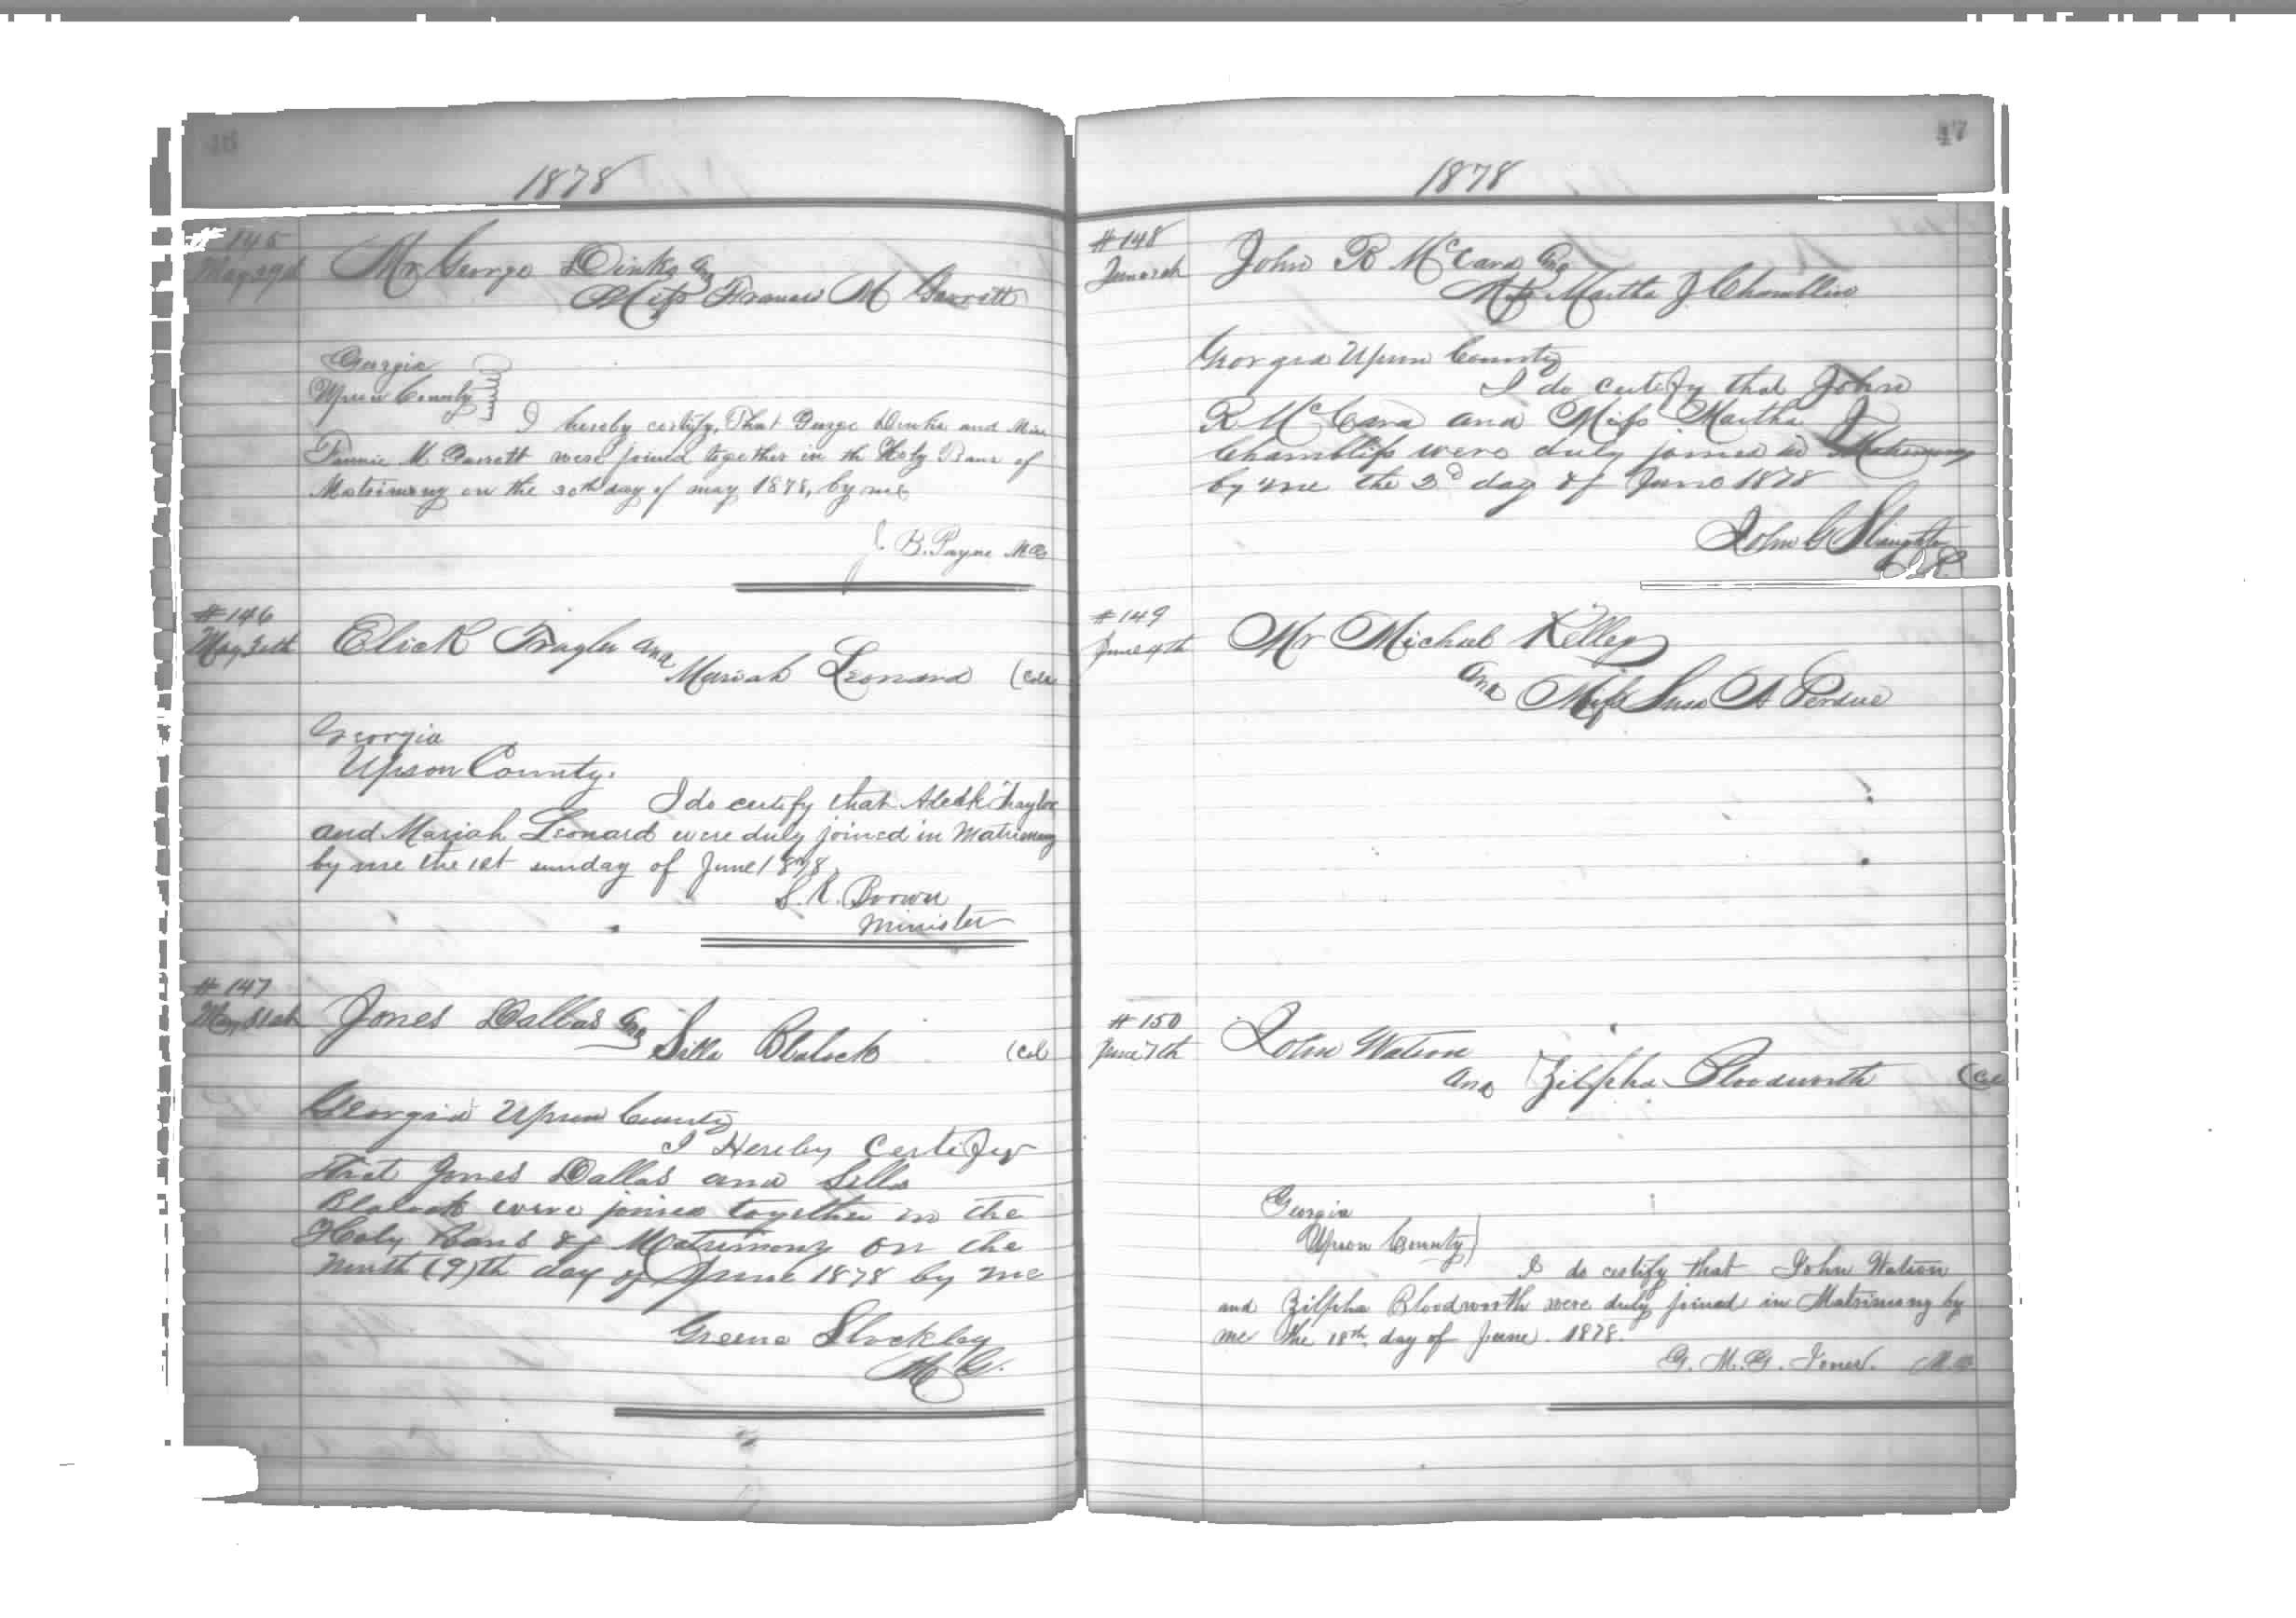 46
1878
# 145
May 29th
Mr George Dinks and
Miss Frances M Garrett
Georgia
Upson County
I hereby certify, That George Dinks and Miss
Fannie M. Garrett were joined together in th Holy Bans of
Matrimony on the 30th day of may 1878, by me
J. B. Payne MG
# 146
May 30th
Elick Traylor and
Mariah Leonard (Col
Georgia
Upson County.
I do certify that Aleck Traylor
and Mariah Leonard were duly joined in Matrimony
by me the 1st sunday of June 1878.
S. R. Brown
Minister
# 147
May 31st
Jones Dallas and
Silla Blalock (Col
Georgia Upson County
I Hereby Certify
that Jones Dallas and Silla
Blalock were joined together in the
Holy bans of Matrimony on the
Ninth (9)th day of June 1878 by me
Greene Stockley
M G.
47
1878
# 148
June
John R McCard and
Miss Martha J Chambliss
Georgia Upson County
I do certify that John
R McCard and Miss Martha J
Chambliss were duly joined in Matrimony
by me the 3d day of June 1878
John G Slaughter
# 149
June 4th
Mr Michael Kelley
and Miss Susa A Perdue
# 150
June 7th
John Watson
and Zilpha Bloodworth (Col
Georgia
Upson County
I do certify that John Watson
and Zilpha Bloodworth were duly joined in Matrimony by
me the 18th day of June. 1878.
G. M. G. Jones. M.G